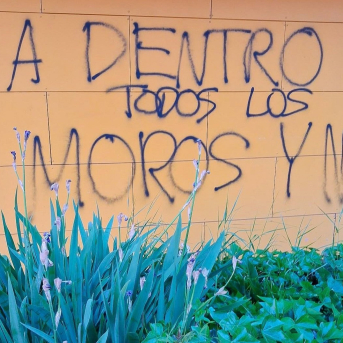 A DENTRO
TODOS LOS
MOROS Y N